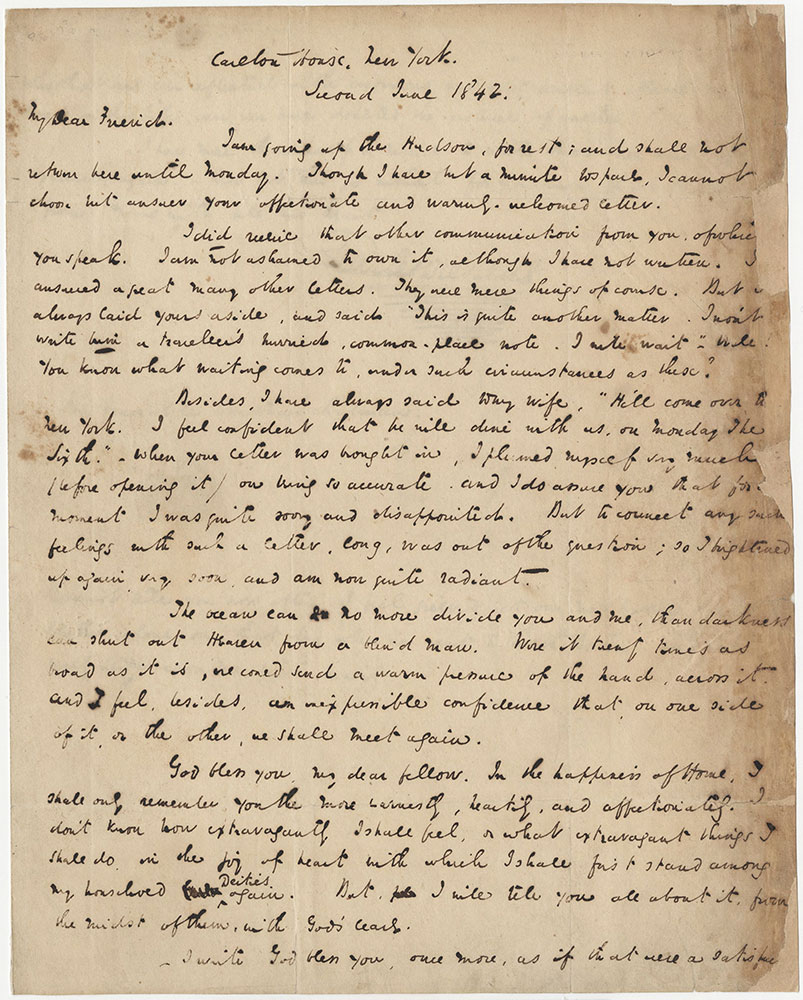 Carlton House, New York.
Second June 1842.
My Dear Friend.
I am going up the Hudson, for rest; and shall not
return here until Monday. Though I have but a minute to spare, I cannot
choose but answer your affectionate and warmly-welcomed letter.
I did receive that other communication from you, of which
you speak. I am not ashamed to own it, although I have not written. I
answered a great many other letters. They were mere things of course. But I
always laid yours aside, and said "This is quite another matter. I won't
write him a traveller's hurried, common-place note. I will wait" - Well.
You know what waiting comes to, under such circumstances as these."
Besides, I have always said to my wife, "He'll come over to
New York. I feel confident that he will dine with us, on Monday The
Sixth." - When your letter was brought in, I plumed myself very much
(before opening it) on being so accurate. And I do assure you that for a
moment I was quite sorry and disappointed. But to connect any such
feelings with such a letter, long, was out of the question; so I brightened
up again very soon, and am now quite radiant.
The ocean can no more divide you and me, than darkness
can shut out Heaven from a blind man. Were it twenty times as
broad as it is, we could send a warm pressure of the hand, across it.
And I feel, besides, an inexpressible confidence that, on one side
of it, or the other, we shall meet again.
God bless you, my dear fellow. In the happiness of Home, I
shall only remember you the more earnestly, heartily, and affectionately. I
don't know how extravagantly I shall feel, or what extravagant things I
shall do, in the joy of heart with which I shall first stand among
my household Deities again. But I will tell you all about it, from
the midst of them, with God's leave.
- I write God bless you, once more, as if that were a satisfac